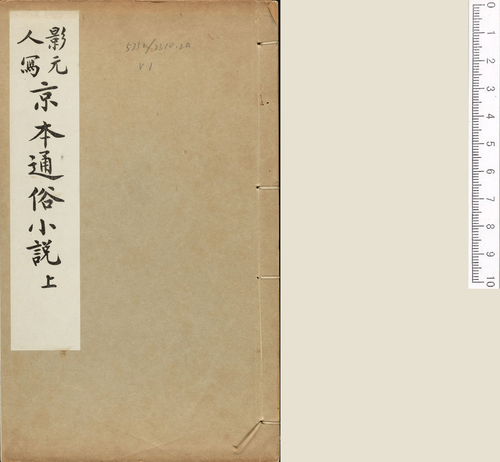 影元
人寫
京本通俗小說 上
v.1
0 1 2 3 4 5 6 7 8 9 10